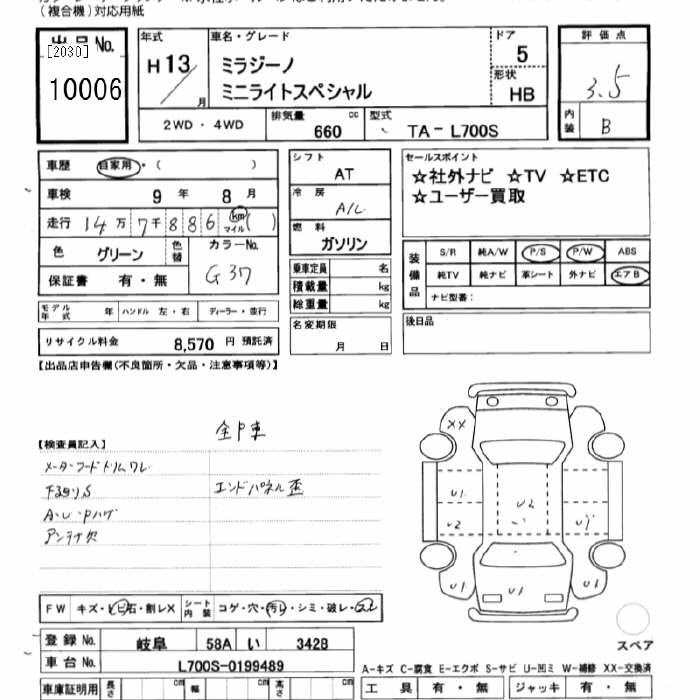 (複合機)対応用紙
出品No.
[2030]
10006
年式
H13
月
車名・グレード
ミラジーノ
ミニライトスペシャル
ドア
5
形状
HB
2WD ・ 4WD
排気量 cc
660
型式
TA- L700S
評価点
3.5
内装
B
車歴 自家用・( )
車検 9 年 8 月
走行 14万7千886 km マイル( )
色 グリーン 色替
カラーNo.
G37
保証書 有・無
モデル年式 年 ハンドル 左・右 ディーラー・並行
リサイクル料金 8,570 円 預託済
シフト
AT
冷房
A/C
燃料
ガソリン
乗車定員 名
積載量 kg
総重量 kg
名変期限
月 日
セールスポイント
☆社外ナビ ☆TV ☆ETC
☆ユーザー買取
装備品
S/R 純A/W P/S P/W ABS
純TV 純ナビ 革シート 外ナビ エアB
ナビ型番:
後日品
【出品店申告欄(不良箇所・欠品・注意事項等)】
【検査員記入】
メーターフードトリムワレ
エンドパネル歪
A・U・Pハゲ
アンテナ欠
XX
U1
U2
U2
U1
U1
U1
U1
スペア
FW キズ・ヒビ石・割レX
シート内装 コゲ・穴・汚レ・シミ・破レ・
登録No. 岐阜 58A い 3428
車台No. L700S-0199489
車庫証明用 長さ cm 幅 cm 高さ cm
A-キズ C-腐食 E-エクボ S-サビ U-凹ミ W-補修 XX-交換済
工具 有・無 ジャッキ 有・無